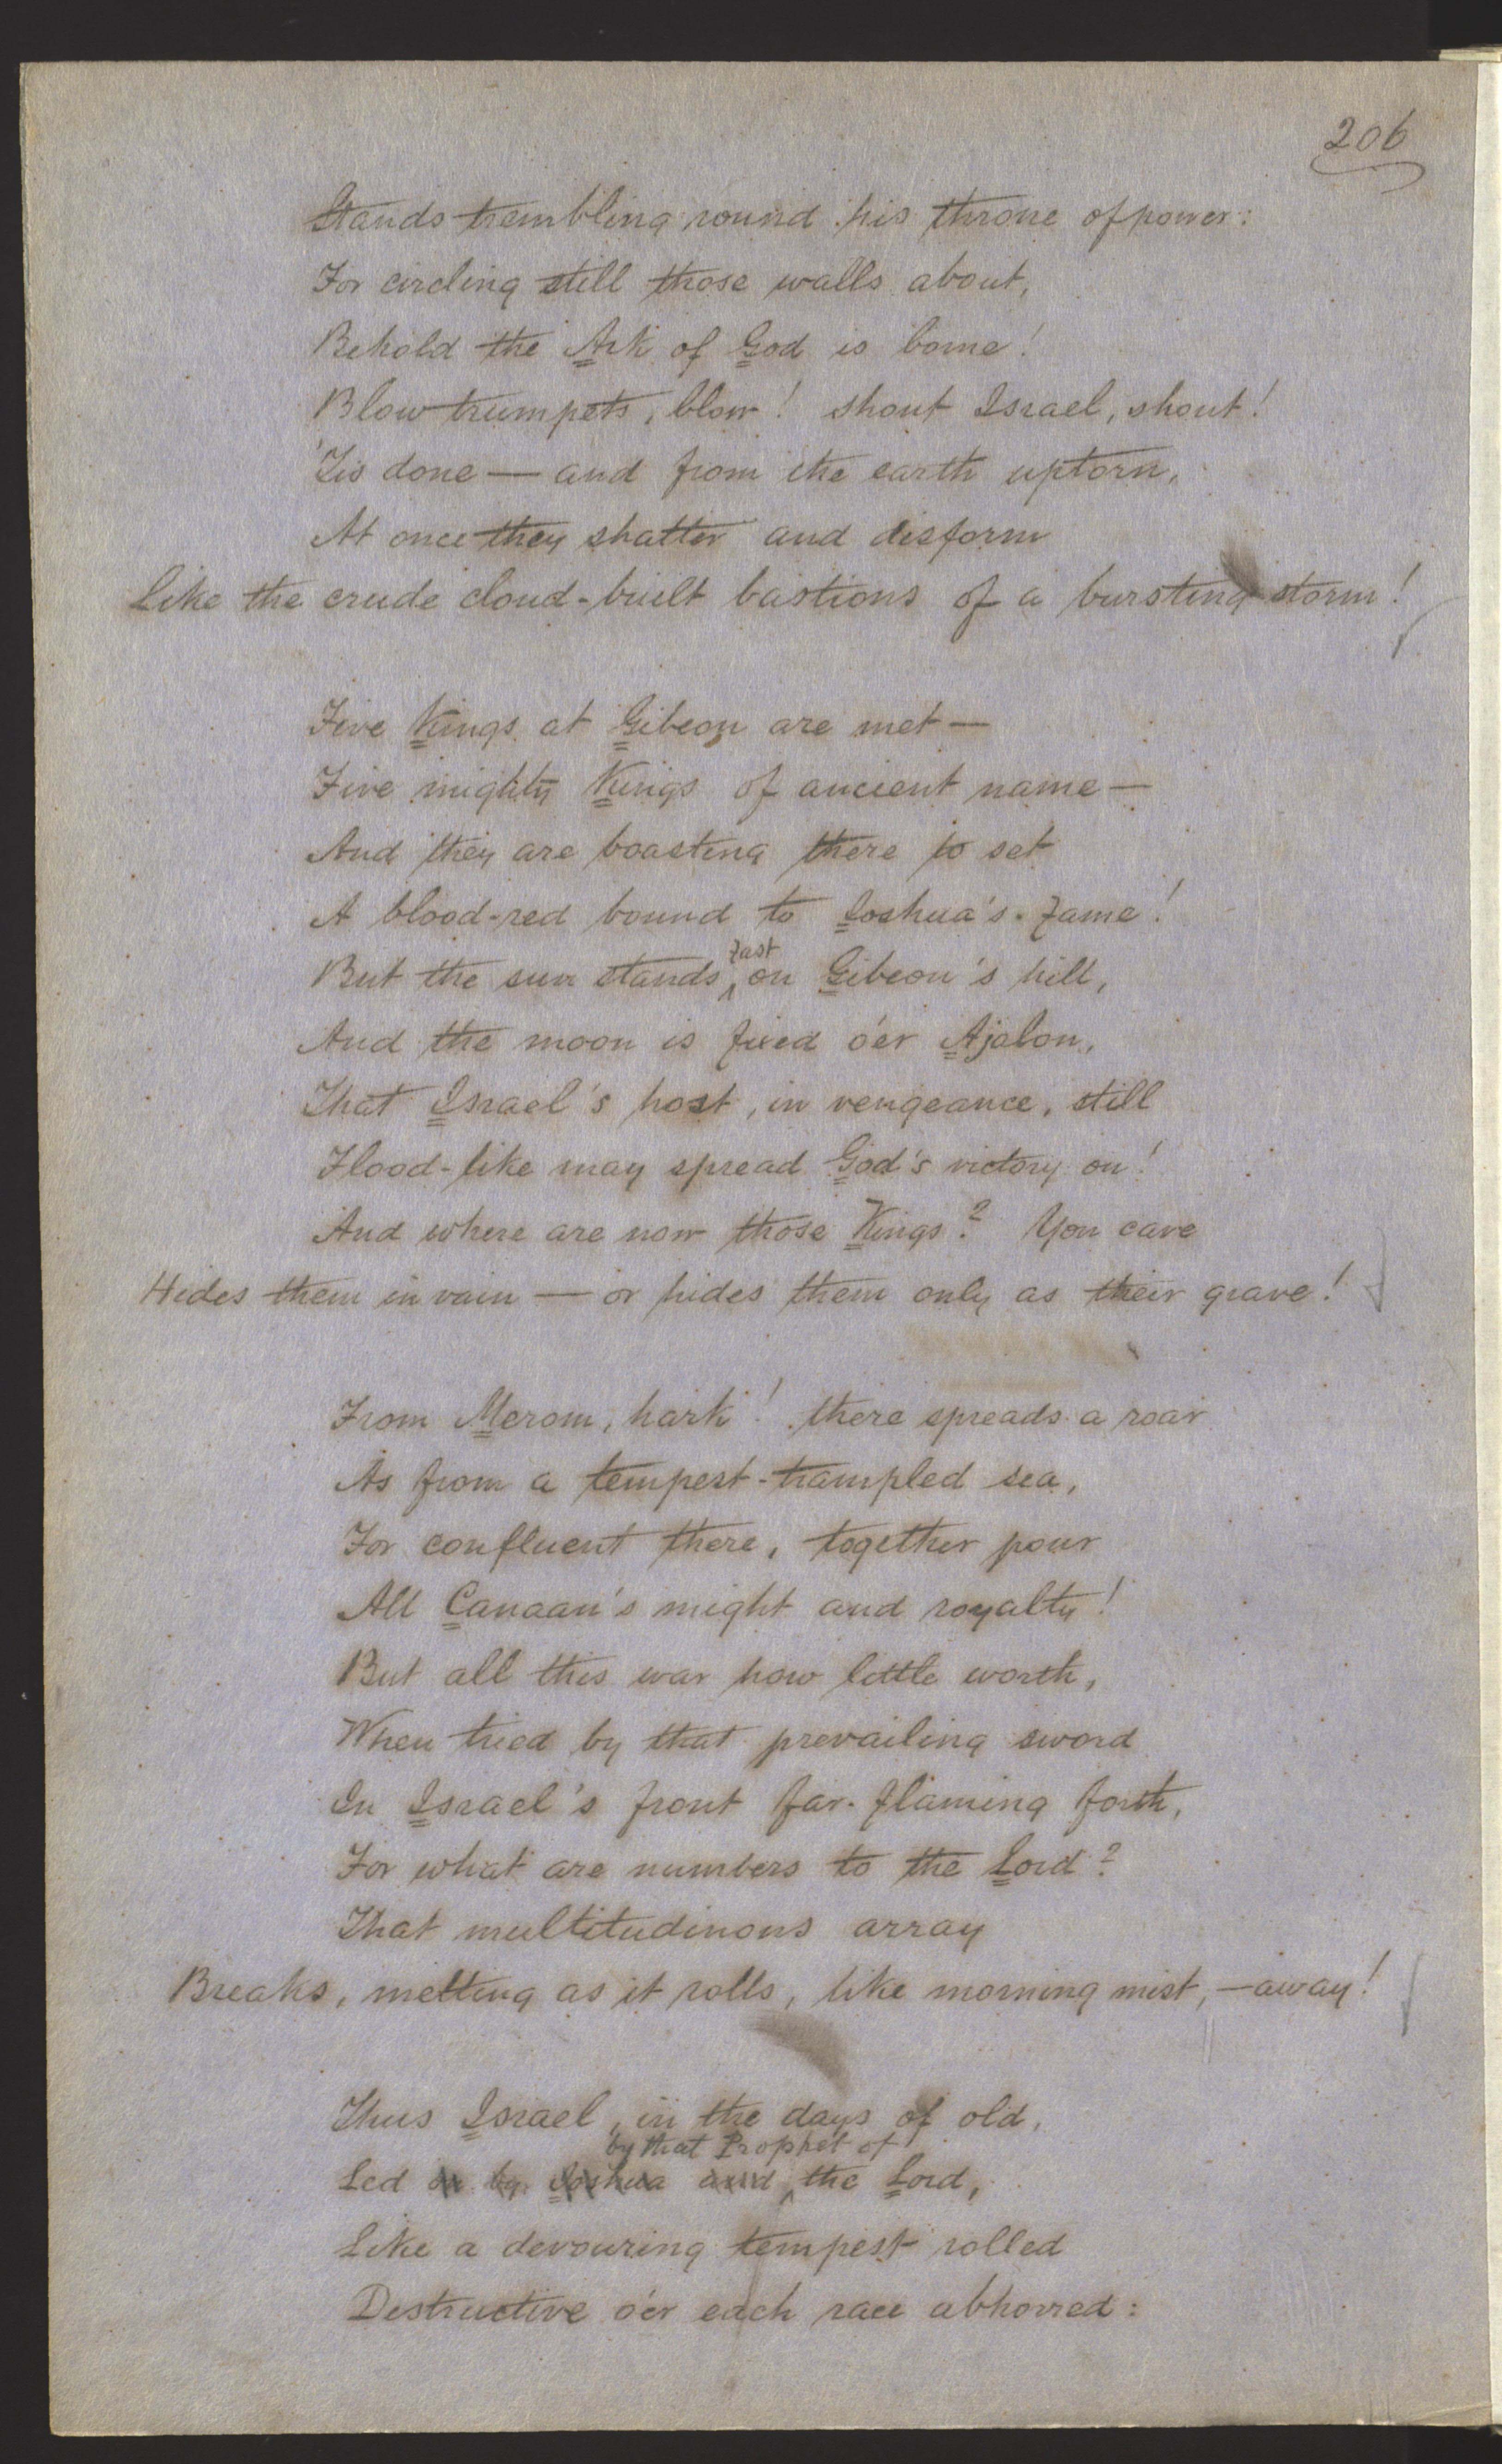 206
Stands trembling round his throne of power:
For circling still those walls about,
Behold the Ark of God is borne!
Blow trumpets, blow! shout Israel, shout!
'Tis done — and from the earth uptorn,
At once they shatter and disform
Like the crude cloud-built bastions of a bursting storm!
Five Kings at Gibeon are met —
Five mighty Kings of ancient name —
And they are boasting there to set
A blood-red bound to Joshua's fame!
fast
But the sun stands on Gibeon's hill,
And the moon is fixed o'er Ajalon,
That Israel's host, in vengeance, still
Flood-like may spread God's victory on!
And where are now those Kings? Yon cave
Hides them in vain — or hides them only as their grave!
From Merom, hark! there spreads a roar
As from a tempest-trampled sea,
For confluent there, together pour
All Canaan's might and royalty!
But all this war how little worth,
When tried by that prevailing sword
In Israel's front far-flaming forth,
For what are numbers to the Lord?
That multitudinous array
Breaks, melting as it rolls, like morning mist, — away!
Thus Israel, in the days of old,
by that Prophet of
Led on by Joshua and the Lord,
Like a devouring tempest rolled
Destructive o'er each race abhorred: